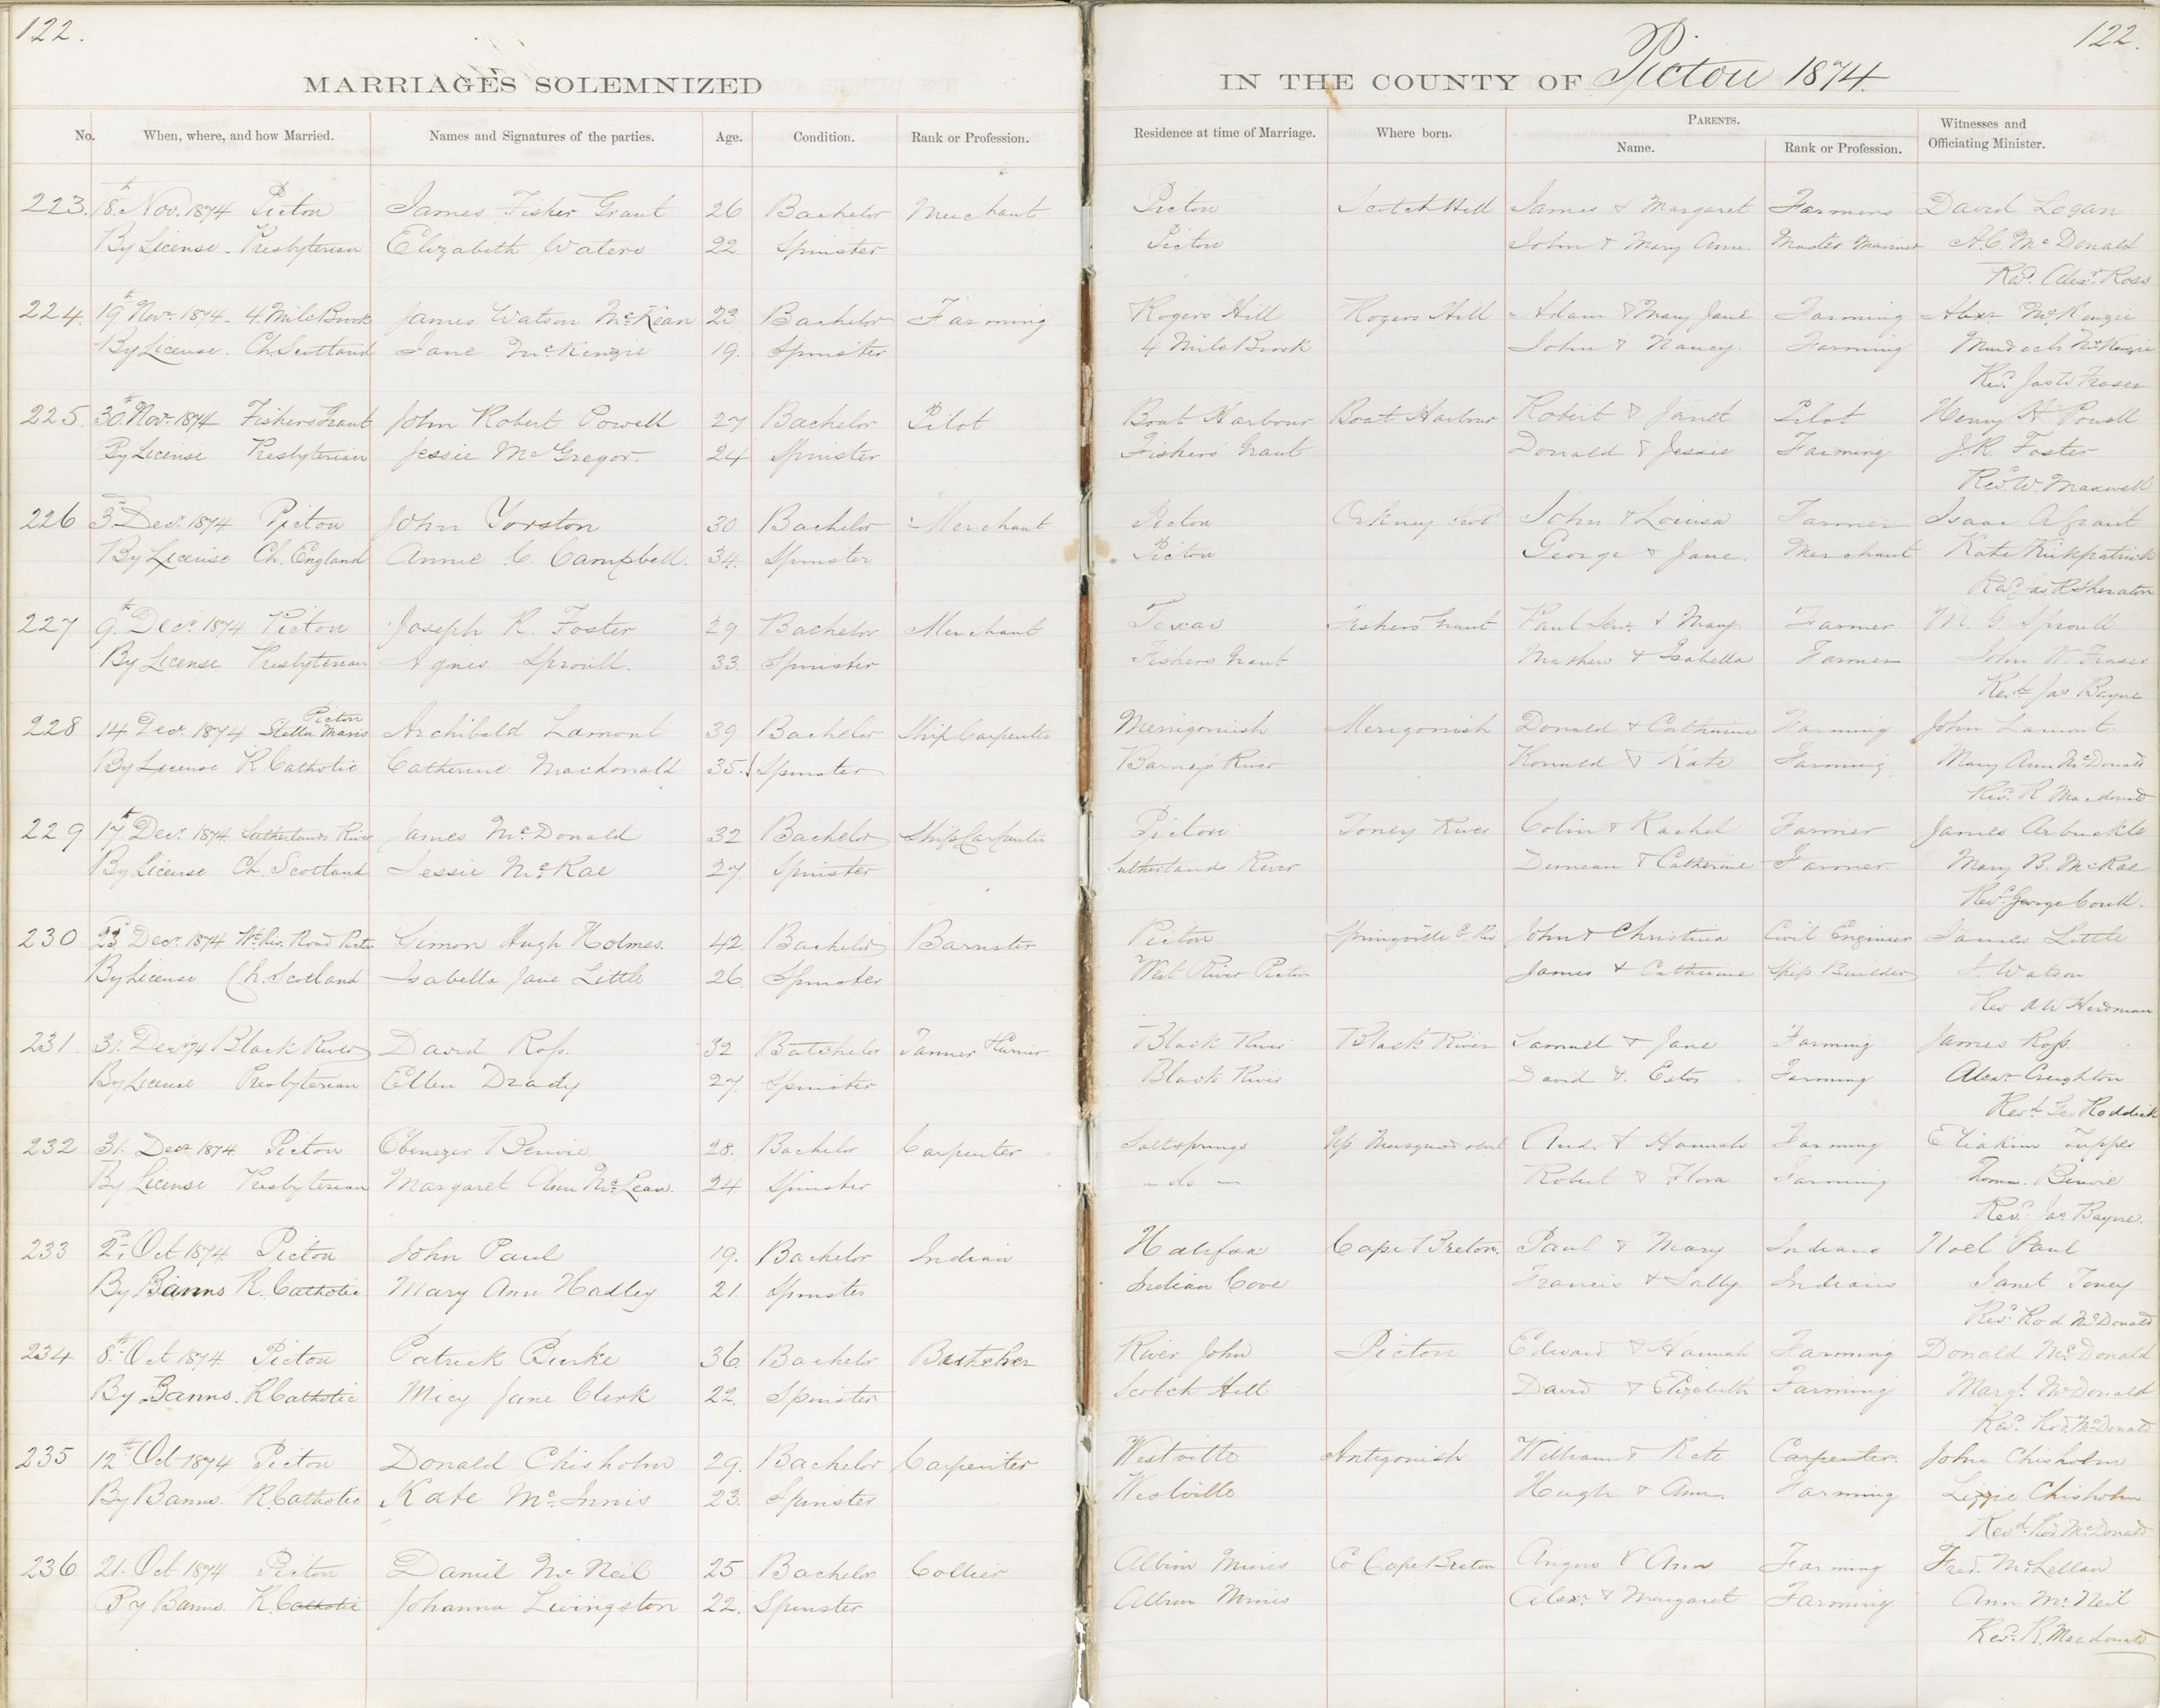 122.
122.
MARRIAGES SOLEMNIZED
IN THE COUNTY OF Pictou 1874.
No. When, where, and how Married. Names and Signatures of the parties. Age. Condition. Rank or Profession. Residence at time of Marriage. Where born. PARENTS. Name. Rank or Profession. Witnesses and Officiating Minister.
223. 18th Nov. 1874 Pictou James Fisher Grant 26 Bachelor Merchant Pictou Scotch Hill James & Margaret Farmers David Logan
By License - Presbyterian Elizabeth Waters 22 Spinster Pictou John & Mary Ann. Master Mariner A.C. McDonald
Revd. Alexr. Ross
224. 19th Novr. 1874 - 4 Mile Brook James Watson McKean 23 Bachelor Farming Rogers Hill Rogers Hill Adam & Mary Jane Farming Alexr McKenzie
By License. Ch. Scotland Jane McKenzie 19. Spinster 4 Mile Brook John & Nancy Farming Murdoch McKenzie
Revd. Jas W Fraser
225. 30th Novr. 1874 Fishers Grant John Robert Powell 27 Bachelor Pilot Boat Harbour Boat Harbour Robert & Janet Pilot Henry H Powell
By License Presbyterian Jessie McGregor. 24 Spinster Fishers' Grant Donald & Jessie Farming J.R. Foster
Revd W. Maxwell
226 3d Decr. 1874 Pictou John Yorston 30 Bachelor Merchant Pictou Orkney Scot John & Louisa Farmer Isaac A Grant
By License Ch. England Annie C. Campbell. 34. Spinster Pictou George & Jane. Merchant Kate Kirkpatrick
Revd Jas R Sheraton
227 9th Decr. 1874 Pictou Joseph R. Foster 29 Bachelor Merchant Texas Fishers' Grant Paul Senr. & Mary Farmer M. G. Sproull
By License Presbyterian Agnes Sproull. 33. Spinster Fishers Grant Mathew & Isabella Farmer John W. Fraser
Revd. Jas Bayne
Pictou
228 14 Decr. 1874 Stella Maris Archibald Lamont 39 Bachelor Ship Carpenter Merrigomish Merigomish Donald & Catherine Farming John Lamont.
By License R Catholic Catherine Macdonald 35. Spinster Barney's River Ronald & Kate Farming Mary Ann McDonald
Revd. R Macdonald
229 17th Decr. 1874. Sutherlands River James McDonald 32 Bachelor Ship Carpenter Pictou Toney River Colin & Rachel Farmer James Arbuckle
By License Ch. Scotland Jessie McRae 27. Spinster Sutherlands River Duncan & Catherine Farmer. Mary B. McRae
Revd. George Coull.
230 23d Decr. 1874 Wt. Riv. Road Pictou Simon Hugh Holmes. 42 Bachelor Barrister Pictou Springville E. Riv John & Christina Civil Engineer James Little
By License Ch. Scotland Isabella Jane Little 26. Spinster West River Pictou James & Catherine Ship Builder J. Watson
Rev A W Herdman
231 31. Decr 74 Black River David Ross. 32 Batchelor Tanner & Currier Black River Black River Samuel & Jane Farming James Ross.
By License Presbyterian Ellen Drady 27. Spinster Black River David & Ester Farming Alexr. Creighton
Revd. Geo Roddick
232 31. Decr 1874 Pictou Ebenezer Benvie 28. Bachelor Carpenter Saltsprings Up Musquodoboit And. & Hannah Farming Eliakim Tupper
By License Presbyterian Margaret Ann McLean. 24. Spinster - do - Robert & Flora Farming Thomas Benvie
Revd. Jas. Bayne.
233 2d. Oct 1874 Pictou John Paul 19. Bachelor Indian Halifax Cape Breton. Paul & Mary Indians Noel Paul
By Banns R. Catholic Mary Ann Hadley 21. Spinster Indian Cove Francis & Sally Indians Janet Toney
Revd. Rod McDonald
234 8th. Oct 1874 Pictou Patrick Burke 36 Bachelor Butcher River John Pictou Edward & Hannah Farming Donald McDonald
By Banns. R Catholic Micy Jane Clerk 22. Spinster Scotch Hill David & Elizabeth Farming Margt. McDonald
Revd. Rod. McDonald
235 12th Oct 1874 Pictou Donald Chisholm 29. Bachelor Carpenter Westville Antigonish William & Kate Carpenter. John Chisholm
By Banns. R. Catholic Kate McInnis 23. Spinster Westville Hugh & Ann. Farming Lizzie Chisholm
Revd. Rod. McDonald
236 21. Oct 1874 Pictou Daniel McNeil 25 Bachelor Collier Albion Mines Co Cape Breton Angus & Ann Farming Fred. McLellan
By Banns. R. Catholic Johanna Livingston 22. Spinster Albion Mines Alexr. & Margaret Farming Ann McNeil
Revd. R. Macdonald